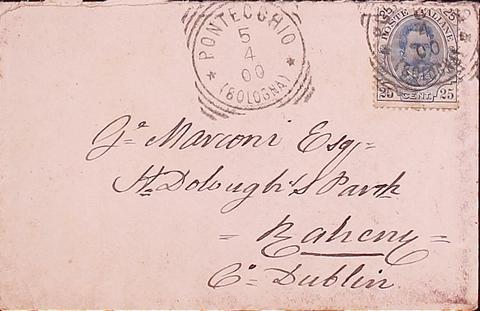 PONTECCHIO
5
4
00
(BOLOGNA)
POSTE ITALIANE
25 25
00
(BOLOGNA)
25 CENT. 25
Ge Marconi Esq=
St Dolough's Park
= Raheny =
Co Dublin